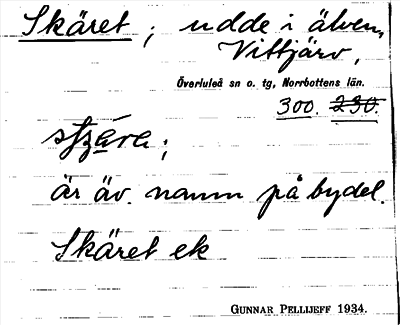 Skäret; udde i älven,
Vittjärv,
Överluleå sn o. tg, Norrbottens län.
300. 230.
är äv. namn på bydel.
Skäret ek
GUNNAR PELLIJEFF 1934.